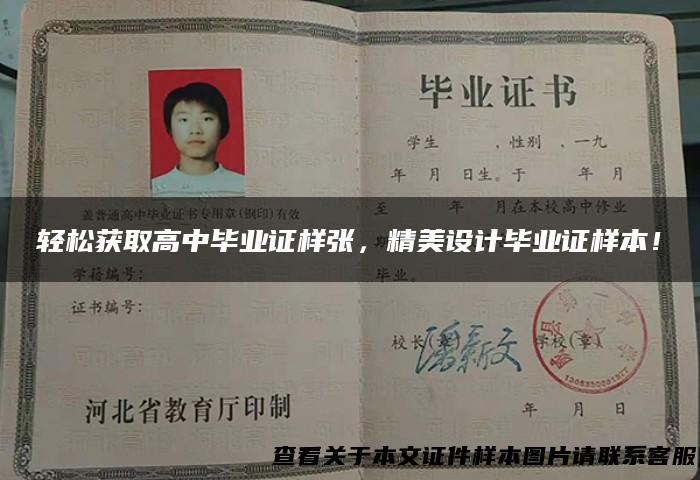 毕业证书
学生 ,性别 ,一九
年 月 日生。于 年 月
至 年 月在本校高中修业
盖普通高中毕业证书专用章(钢印)有效
轻松获取高中毕业证样张，精美设计毕业证样本！
学籍编号:
毕业。
证书编号:
校长(章) 学校(章)
河北省教育厅印制
年 月 日
查看关于本文证件样本图片请联系客服